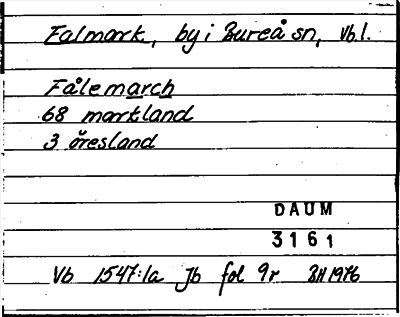 Falmark, by i Bureå sn, Vb.l.
Fålemarch
68 markland
3 öresland
DAUM
3161
Vb 1547:1a Jb fol 9r BH 1976